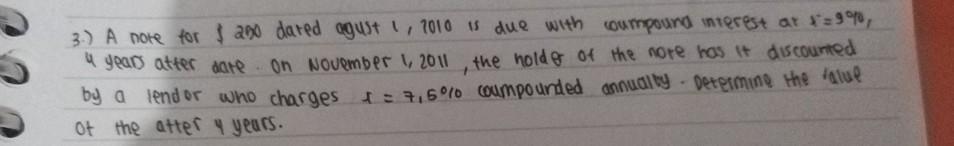 3.) A note for $ 200 dated agust 1, 2010 is due with coumpound interest at r=9%,
4 years after date. On November 1, 2011, the holder of the note has it discounted
by a lendor who charges r = 7,5% coumpounded annually. Determine the value
of the after 4 years.